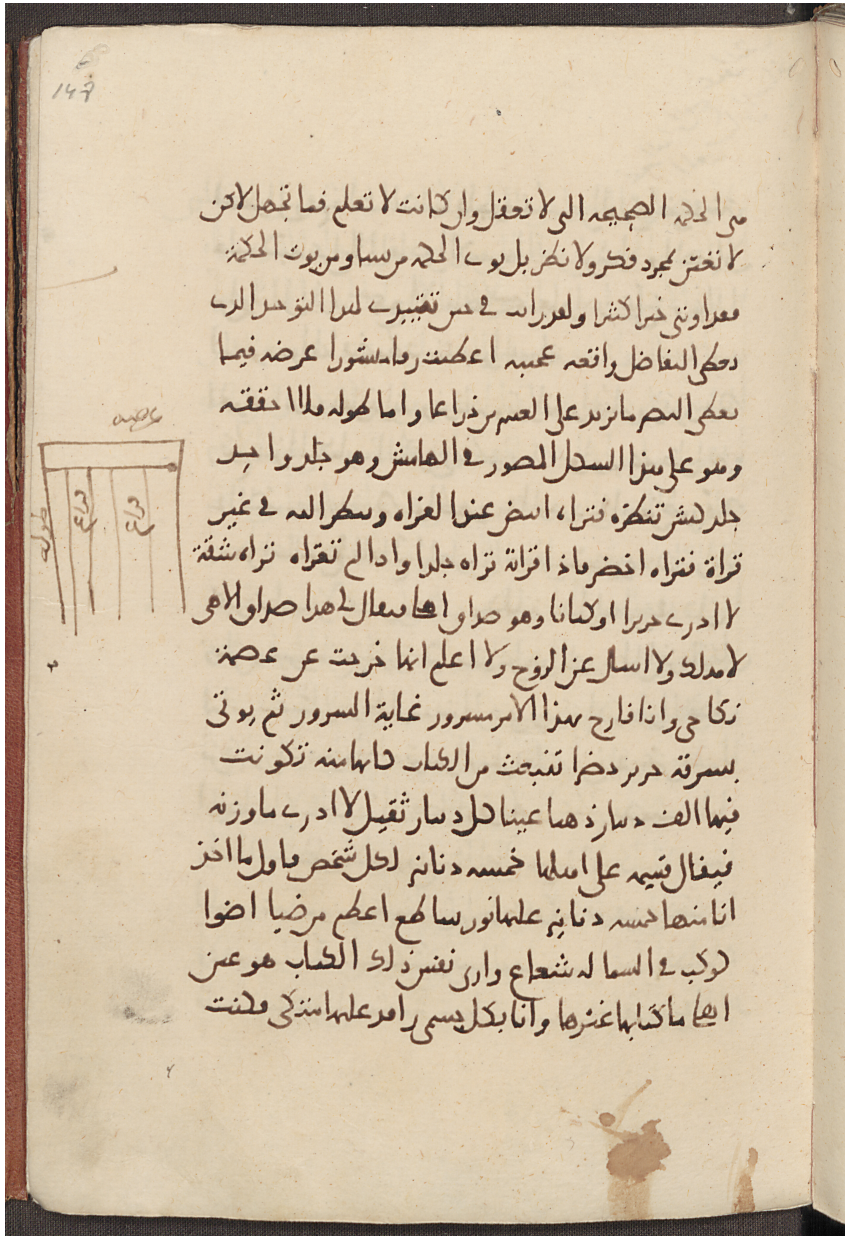 من الحكمة الصحيحة التي لا تعقل وان كانت لا تعلم فما تجهل لاكن
لا تتعين بمجرد فكر ولا نظر بل يوتي الحكمة من يشا ومن يوت الحكمة
فقد اوتي خيرا كثيرا ولقد رايت في حين تقييدي لهذا التوحيد الذي
يعطي التفاضل واقعة عجيبة اعطيت رقا منشورا عرضه فيما
يعطي البصر ما يزيد على العشرين ذراعا واما طوله فلا احققه
وهو على هذا الشكل المصور في الهامش وهو جلد واحد
جلد كبش تنظره فتراه ابيض عند القراة وتنظر اليه في غير
قراة فتراه اخضر فاذا قراته تراه جلدا واذا لم تقراه تراه شقة
لا ادري حريرا او كتانا وهو صداق فيقال لي هذا صداق الاهي
ولا اسال عن الزوج ولا اعلم انها خرجت عن عصمة
نكاحي وانا فارح بهذا الامر مسرور غاية السرور ثم يوتى
بسرقة حرير خضرا تنبعث من الكتاب كانها منه تكونت
فيها الف دينار ذهبا عينا كل دينار ثقيل لا ادري ما وزنه
فيقال قسمه على اهلها خمسة دنانير لكل شخص فاول ما اخذ
انا منها خمسة دنانير عليها نور ساطع اعظم من ضيا اضوا
كوكب في السما له شعاع وارى نفس ذلك الكتاب هو عين
ما كتابها غيرها وانا بكل جسمي راقد عليها متكي فكنت
عرضه
طوله
ذراع
ذراع